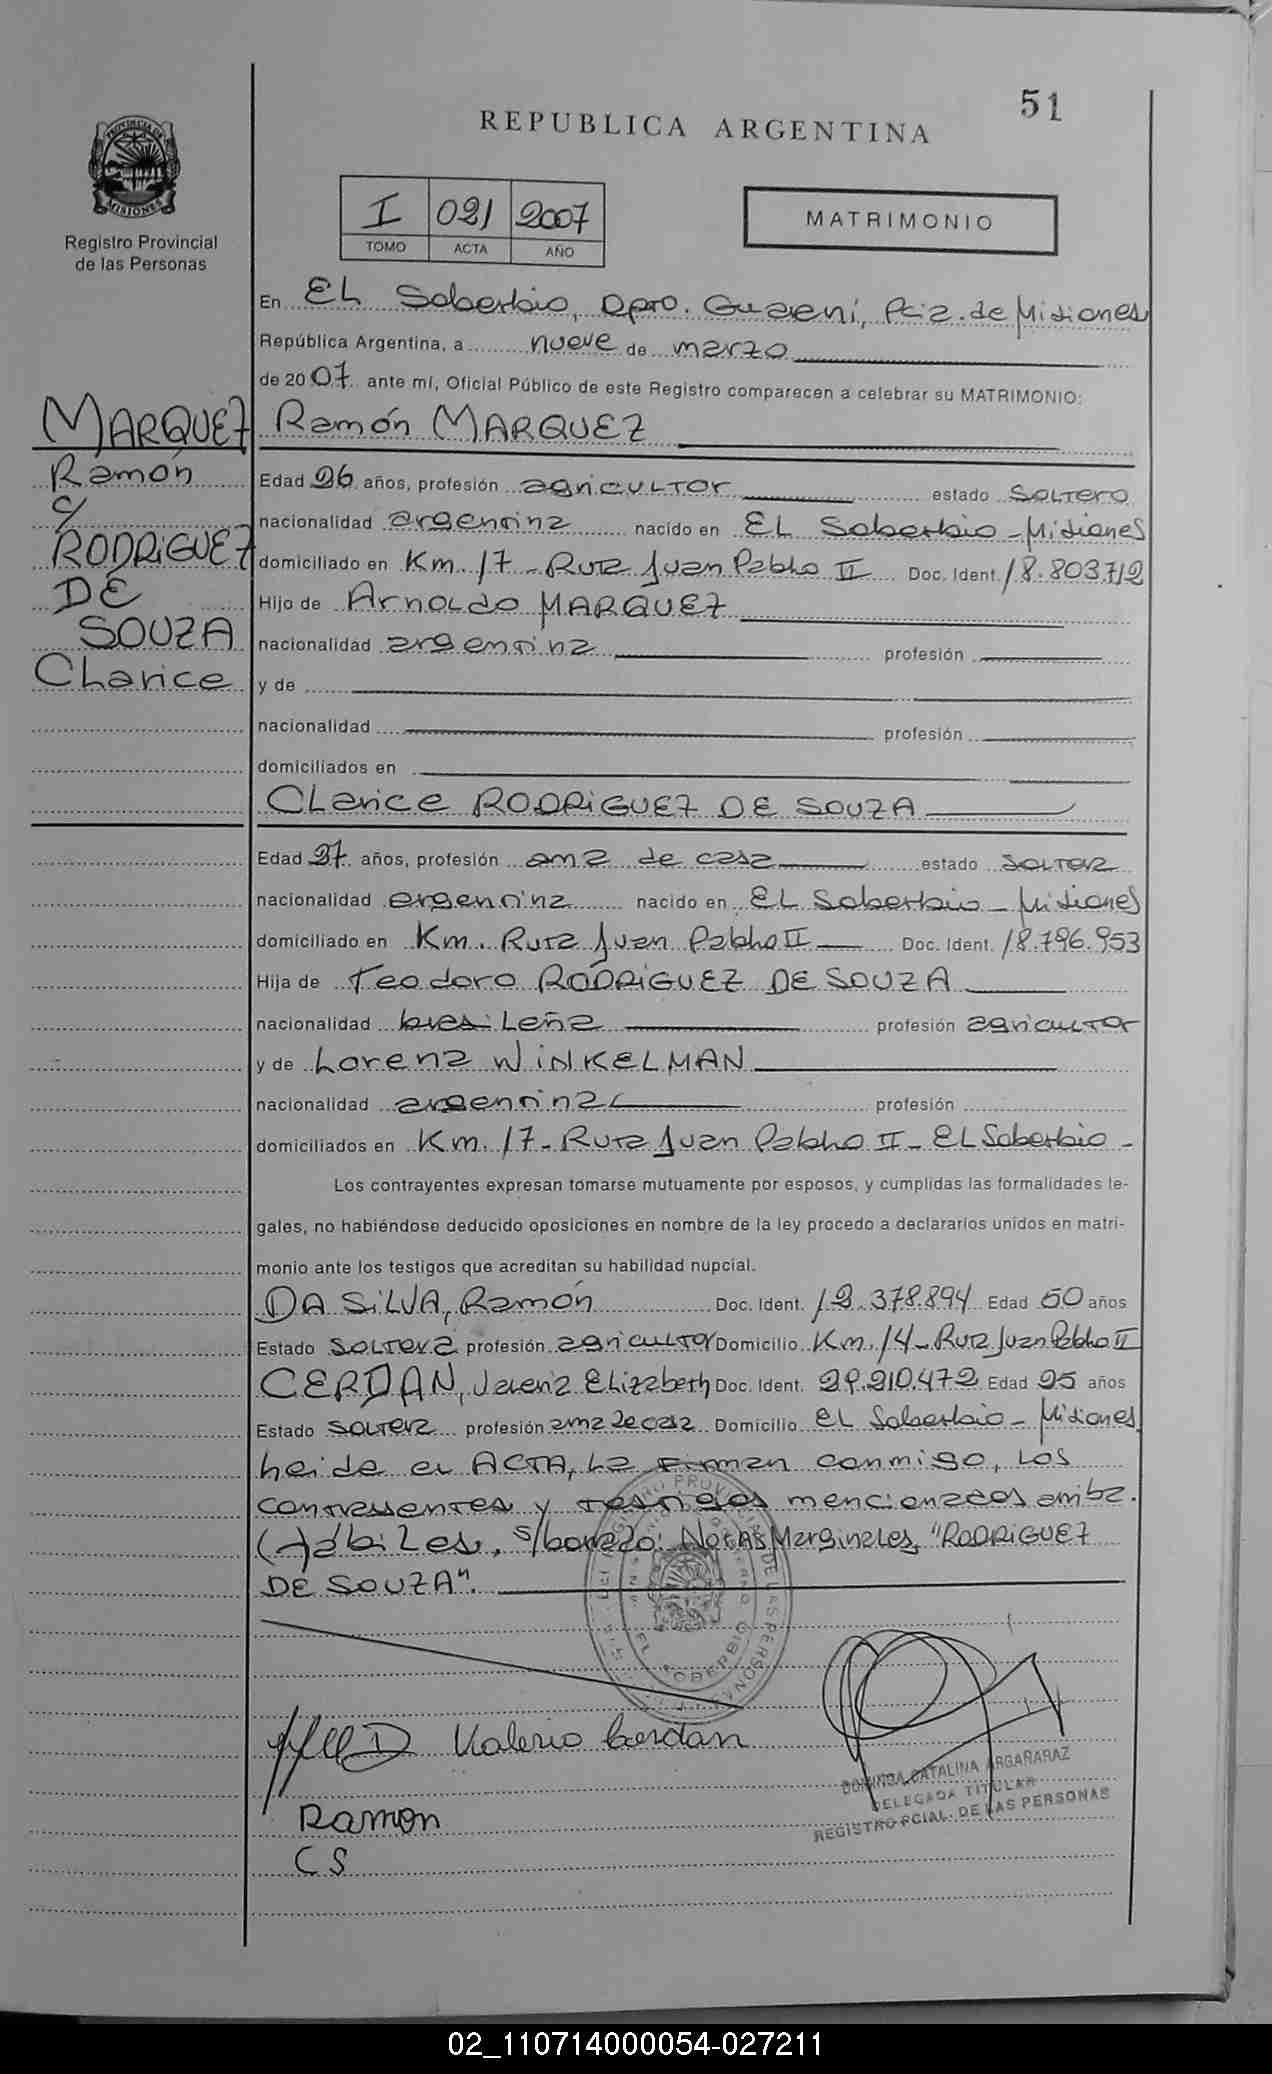 51
REPUBLICA ARGENTINA
PROVINCIA DE
MISIONES
Registro Provincial
de las Personas
I 021 2007
TOMO ACTA AÑO
MATRIMONIO
En EL Soberbio, Dpto. Guaraní, Pcia. de Misiones
República Argentina, a nueve de marzo
de 2007. ante mí, Oficial Público de este Registro comparecen a celebrar su MATRIMONIO:
MARQUEZ
Ramón
c/
RODRiGUEZ
DE
SOUZA
Clarice
Ramón MARQUEZ
Edad 26 años, profesión agricultor estado soltero
nacionalidad argentina nacido en EL Soberbio - Misiones
domiciliado en Km. 17 - Ruta Juan Pablo II Doc. Ident. 18.803.712
Hijo de Arnoldo MARQUEZ
nacionalidad argentina profesión
y de
nacionalidad profesión
domiciliados en
Clarice RODRiGUEZ DE SOUZA
Edad 27. años, profesión ama de casa estado soltera
nacionalidad argentina nacido en EL Soberbio - Misiones
domiciliado en Km. Ruta Juan Pablo II Doc. Ident. 18.796.953
Hija de Teodoro RODRiGUEZ DE SOUZA
nacionalidad brasileña profesión agricultor
y de Lorena WiNKELMAN
nacionalidad argentina profesión
domiciliados en Km. 17 - Ruta Juan Pablo II - EL Soberbio -
Los contrayentes expresan tomarse mutuamente por esposos, y cumplidas las formalidades le-
gales, no habiéndose deducido oposiciones en nombre de la ley procedo a declararlos unidos en matri-
monio ante los testigos que acreditan su habilidad nupcial.
DA SiLVA, Ramón Doc. Ident. 12.378.894 Edad 50 años
Estado soltera profesión agricultor Domicilio Km. 14 - Ruta Juan Pablo II
CERDAN, Elizabeth Doc. Ident. 29.210.472 Edad 25 años
Estado soltera profesión ama de casa Domicilio EL Soberbio - Misiones
Leida el ACTA, la firman conmigo, los
contrayentes y testigos mencionados arriba.
(H)ábiles, s/borrado: Notas Marginales, "RODRiGUEZ
DE SOUZA".
EL SOBERBIO
Valerio Cerdan
Ramon
CS
DOMINGA CATALINA ARGAÑARAZ
DELEGADA TITULAR
REGISTRO PCIAL. DE LAS PERSONAS
02_110714000054-027211